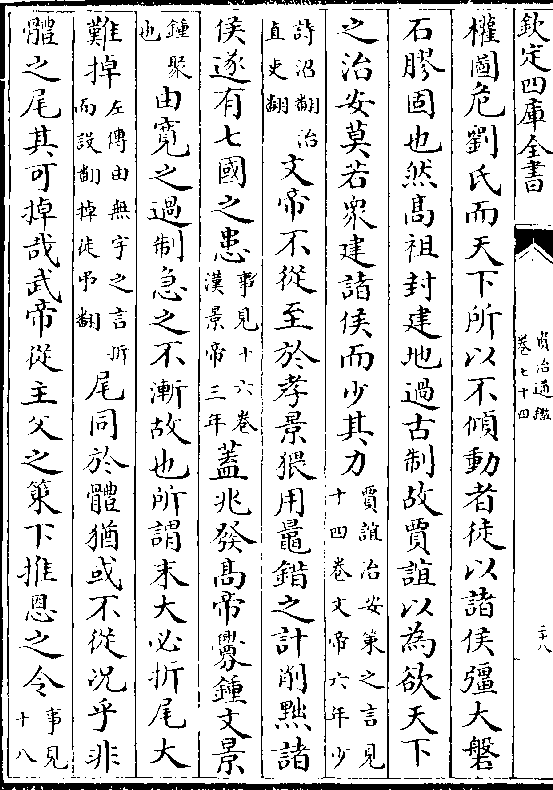 欽定四庫全書
資治通鑑
卷七十四
二十八
權圖危劉氏而天下所以不傾動者徒以諸侯彊大盤
石膠固也然髙祖封建地過古制故賈誼以為欲天下
之治安莫若衆建諸侯而少其力賈誼治安策之言見十四卷文帝六年少
詩沼翻治直吏翻文帝不從至於孝景猥用鼂錯之計削黜諸
侯遂有七國之患事見十六卷漢景帝三年蓋兆發髙帝釁鍾文景
鍾聚也由寛之過制急之不漸故也所謂末大必折尾大
難掉左傳申無宇之言折而設翻掉徒弔翻尾同於體猶或不從況乎非
體之尾其可掉哉武帝從主父之策下推恩之令事見十八